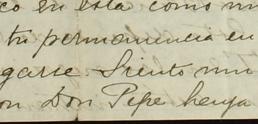 co en esta como mi
tu permanencia en
garse. Siento mu
on Don Pepe haya